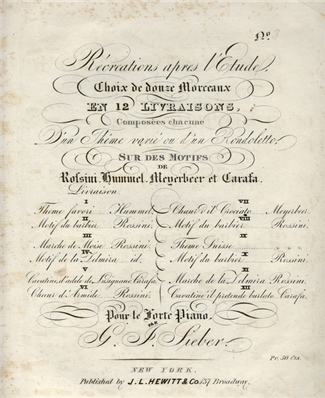 No.
Récréations après l'Etude.
Choix de douze Morceaux
EN 12 LIVRAISONS,
Composées chacune
D'un Thême varié ou d'un Rondoletto.
SUR DES MOTIFS
DE
Rossini, Hummel, Meyerbeer et Carafa.
Livraison.
I
Thême favori Hummel.
II
Motif du barbier Rossini.
III
Marche de Moïse Rossini.
IV
Motif de la Zelmira id.
V
Cavatine d'adele de Lusignan Carafa.
VI
Chœur d'Armide Rossini.
VII
Chant d'il Crociato Meyerbeer.
VIII
Motif du barbier Rossini.
IX
Thême Suisse
X
Motif du barbier Rossini.
XI
Marche de la Zelmira Rossini.
XII
Cavatine il pretende burlato Carafa.
Pour le Forte Piano.
PAR
G. F. Sieber.
Pr. 50 Cts.
NEW YORK,
Published by J.L. HEWITT & Co. 137 Broadway.